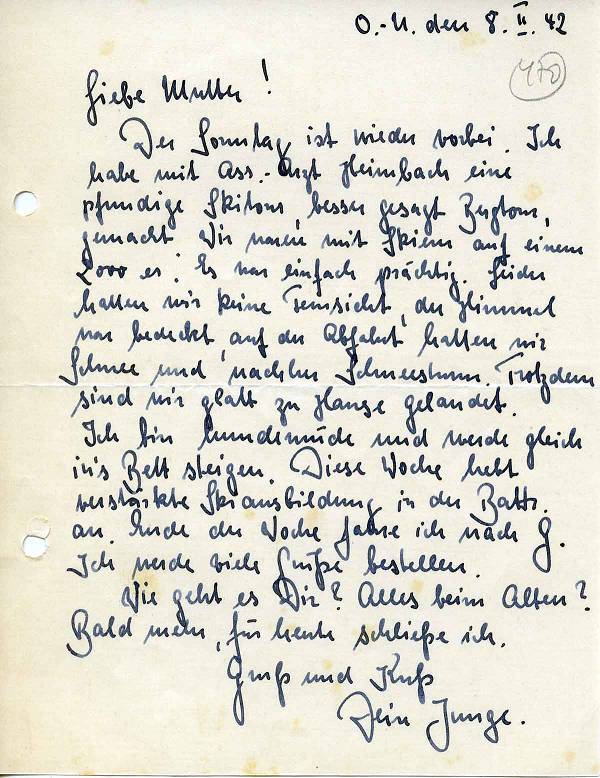 O.-U. den 8. II. 42
470
Liebe Mutter!
Der Sonntag ist wieder vorbei. Ich
habe mit Ass.-Arzt Heimbach eine
pfundige Skitour, besser gesagt Bergtour,
gemacht. Wir waren mit Skiern auf einem
2000 er. Es war einfach prächtig. Leider
hatten wir keine Fernsicht, der Himmel
war bedeckt, auf der Abfahrt hatten wir
Schnee und nachher Schneesturm. Trotzdem
sind wir glatt zu Hause gelandet.
Ich bin hundemüde und werde gleich
in's Bett steigen. Diese Woche hebt
verstärkte Skiausbildung in der Battr.
an. Ende der Woche fahre ich nach G.
Ich werde viele Grüße bestellen.
Wie geht es Dir? Alles beim Alten?
Bald mehr, für heute schließe ich.
Gruß und Kuß
Dein Junge.